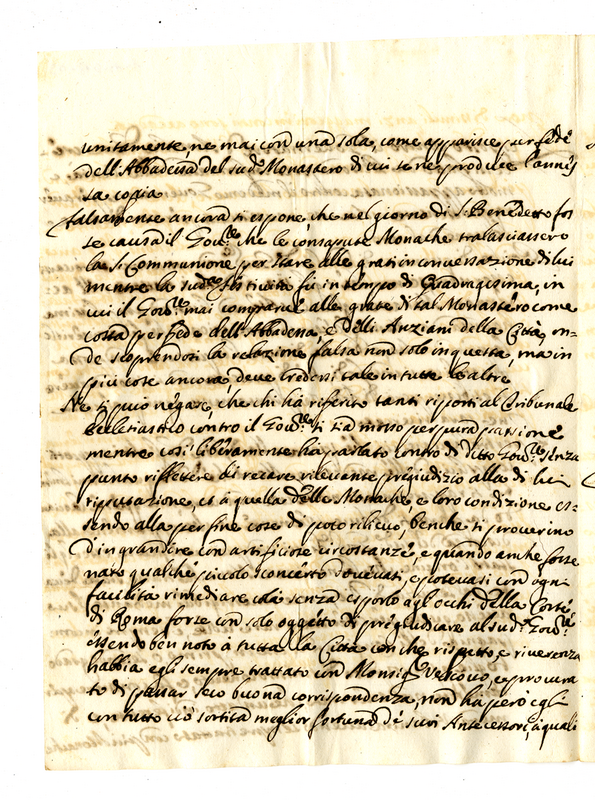 unitamente, ne mai con una sola, come apparisce per fede
dell'Abbadessa del sud.o Monastero di cui se ne produce l'annes
sa copia
Falsamente ancora si espone che nel giorno di S. Benedetto fos
se causa il Gov.re che le consapute Monache tralasciassero
la S. Communione per stare alle grati in conversazione di lui
mentre la sud.a festività fù in tempo di Quadragesima, in
cui il Gov.re mai comparve alle grate di tal Monastero come
costa per fede dell'Abbadessa, e delli Anziani della Città, on-
de scoprendosi la relazione falsa non solo in questa, ma in
più cose ancora deve credersi tale in tutte le altre
Ne si può negare, che chi hà riferito tanti riporti al Tribunale
Ecclesiastico contro il Gov.re si sia mosso per pura passione
mentre così liberamente ha parlato contro di ditto Gov.re senza
punto riflettere di recare rilevante pregiudizio alla di lui
riputazione, et à quella delle Monache, e loro condizione es-
sendo alla per fine cose di poco rilievo, benche si procurino
d'ingrandire con artificiose circostanze, e quando anche fosse
nato qualche piccolo sconcerto dovevasi, e potevasi con ogni
facilità rimediare colà senza esporlo agl'occhi della Corte
di Roma forse con solo oggetto di pregiudicare al sud.o Gov.re
essendo ben noto à tutta la Città con che rispetto, e riverenza
habbia egli sempre trattato con Monsig.r Vescovo, e procura
to di passar seco buona corrispondenza, non ha però egli
con tutto ciò sortita meglior fortuna de suoi Antecessori, à quali